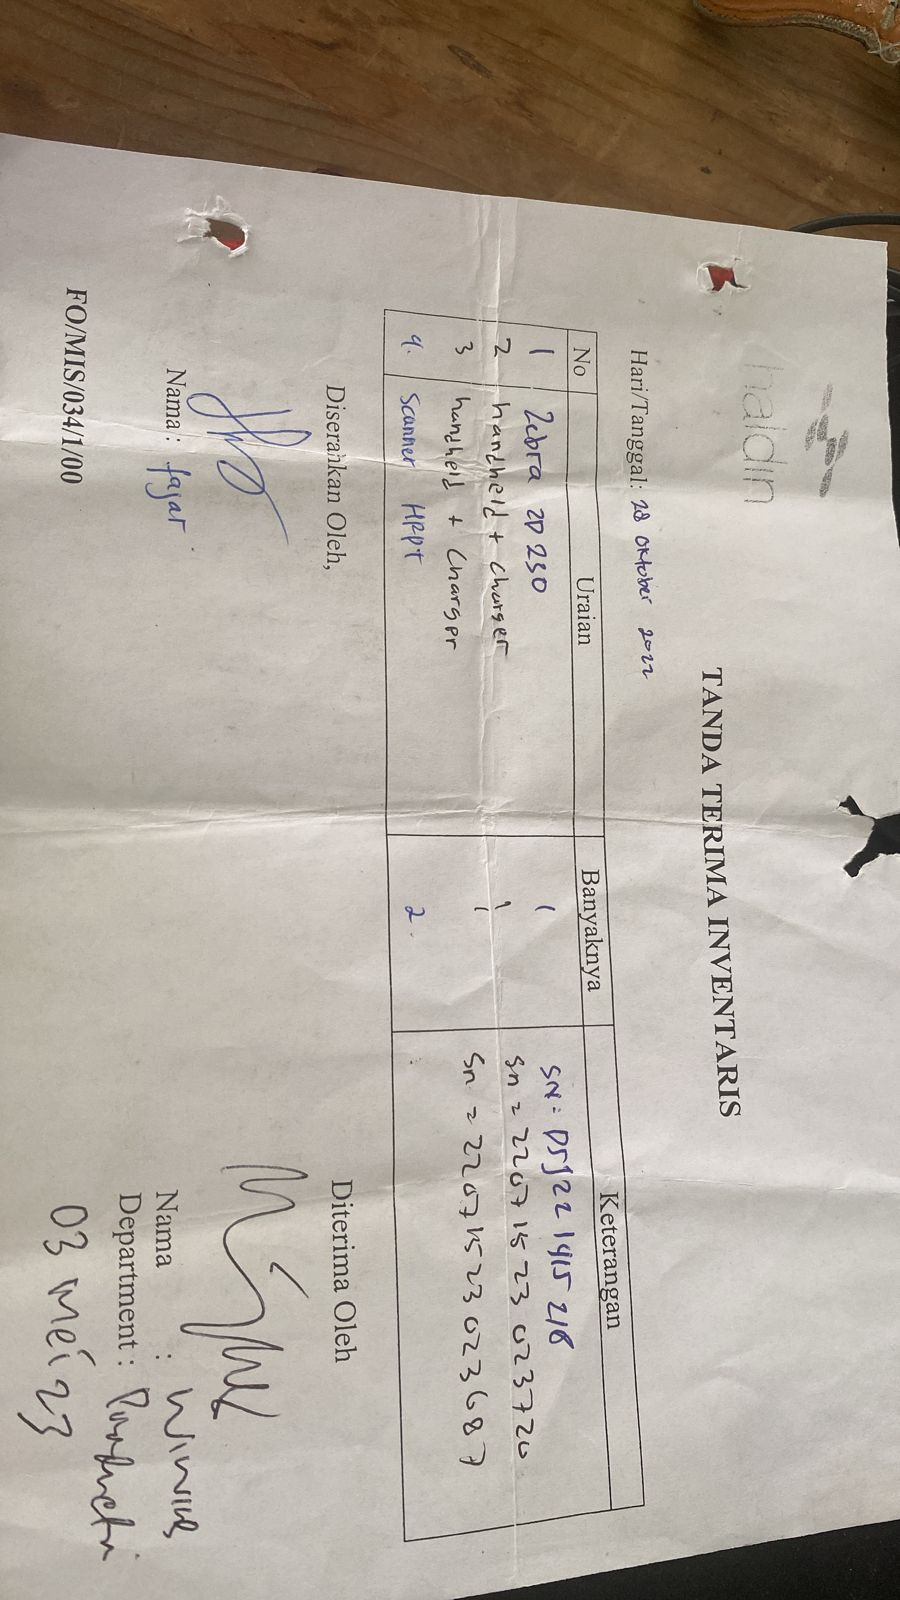 haldin
TANDA TERIMA INVENTARIS
Hari/Tanggal: 28 Oktober 2022
No Uraian Banyaknya Keterangan
1 Zebra ZD 230 1 SN: D5J22 1415 218
2 handheld + charger 1 Sn = 2207 1523 023720
3 handheld + charger 1 Sn = 22071523023687
4. Scanner HPPT 2
Diserahkan Oleh, Diterima Oleh
Nama: fajar Nama :
Department :
03 Mei 23
FO/MIS/034/1/00